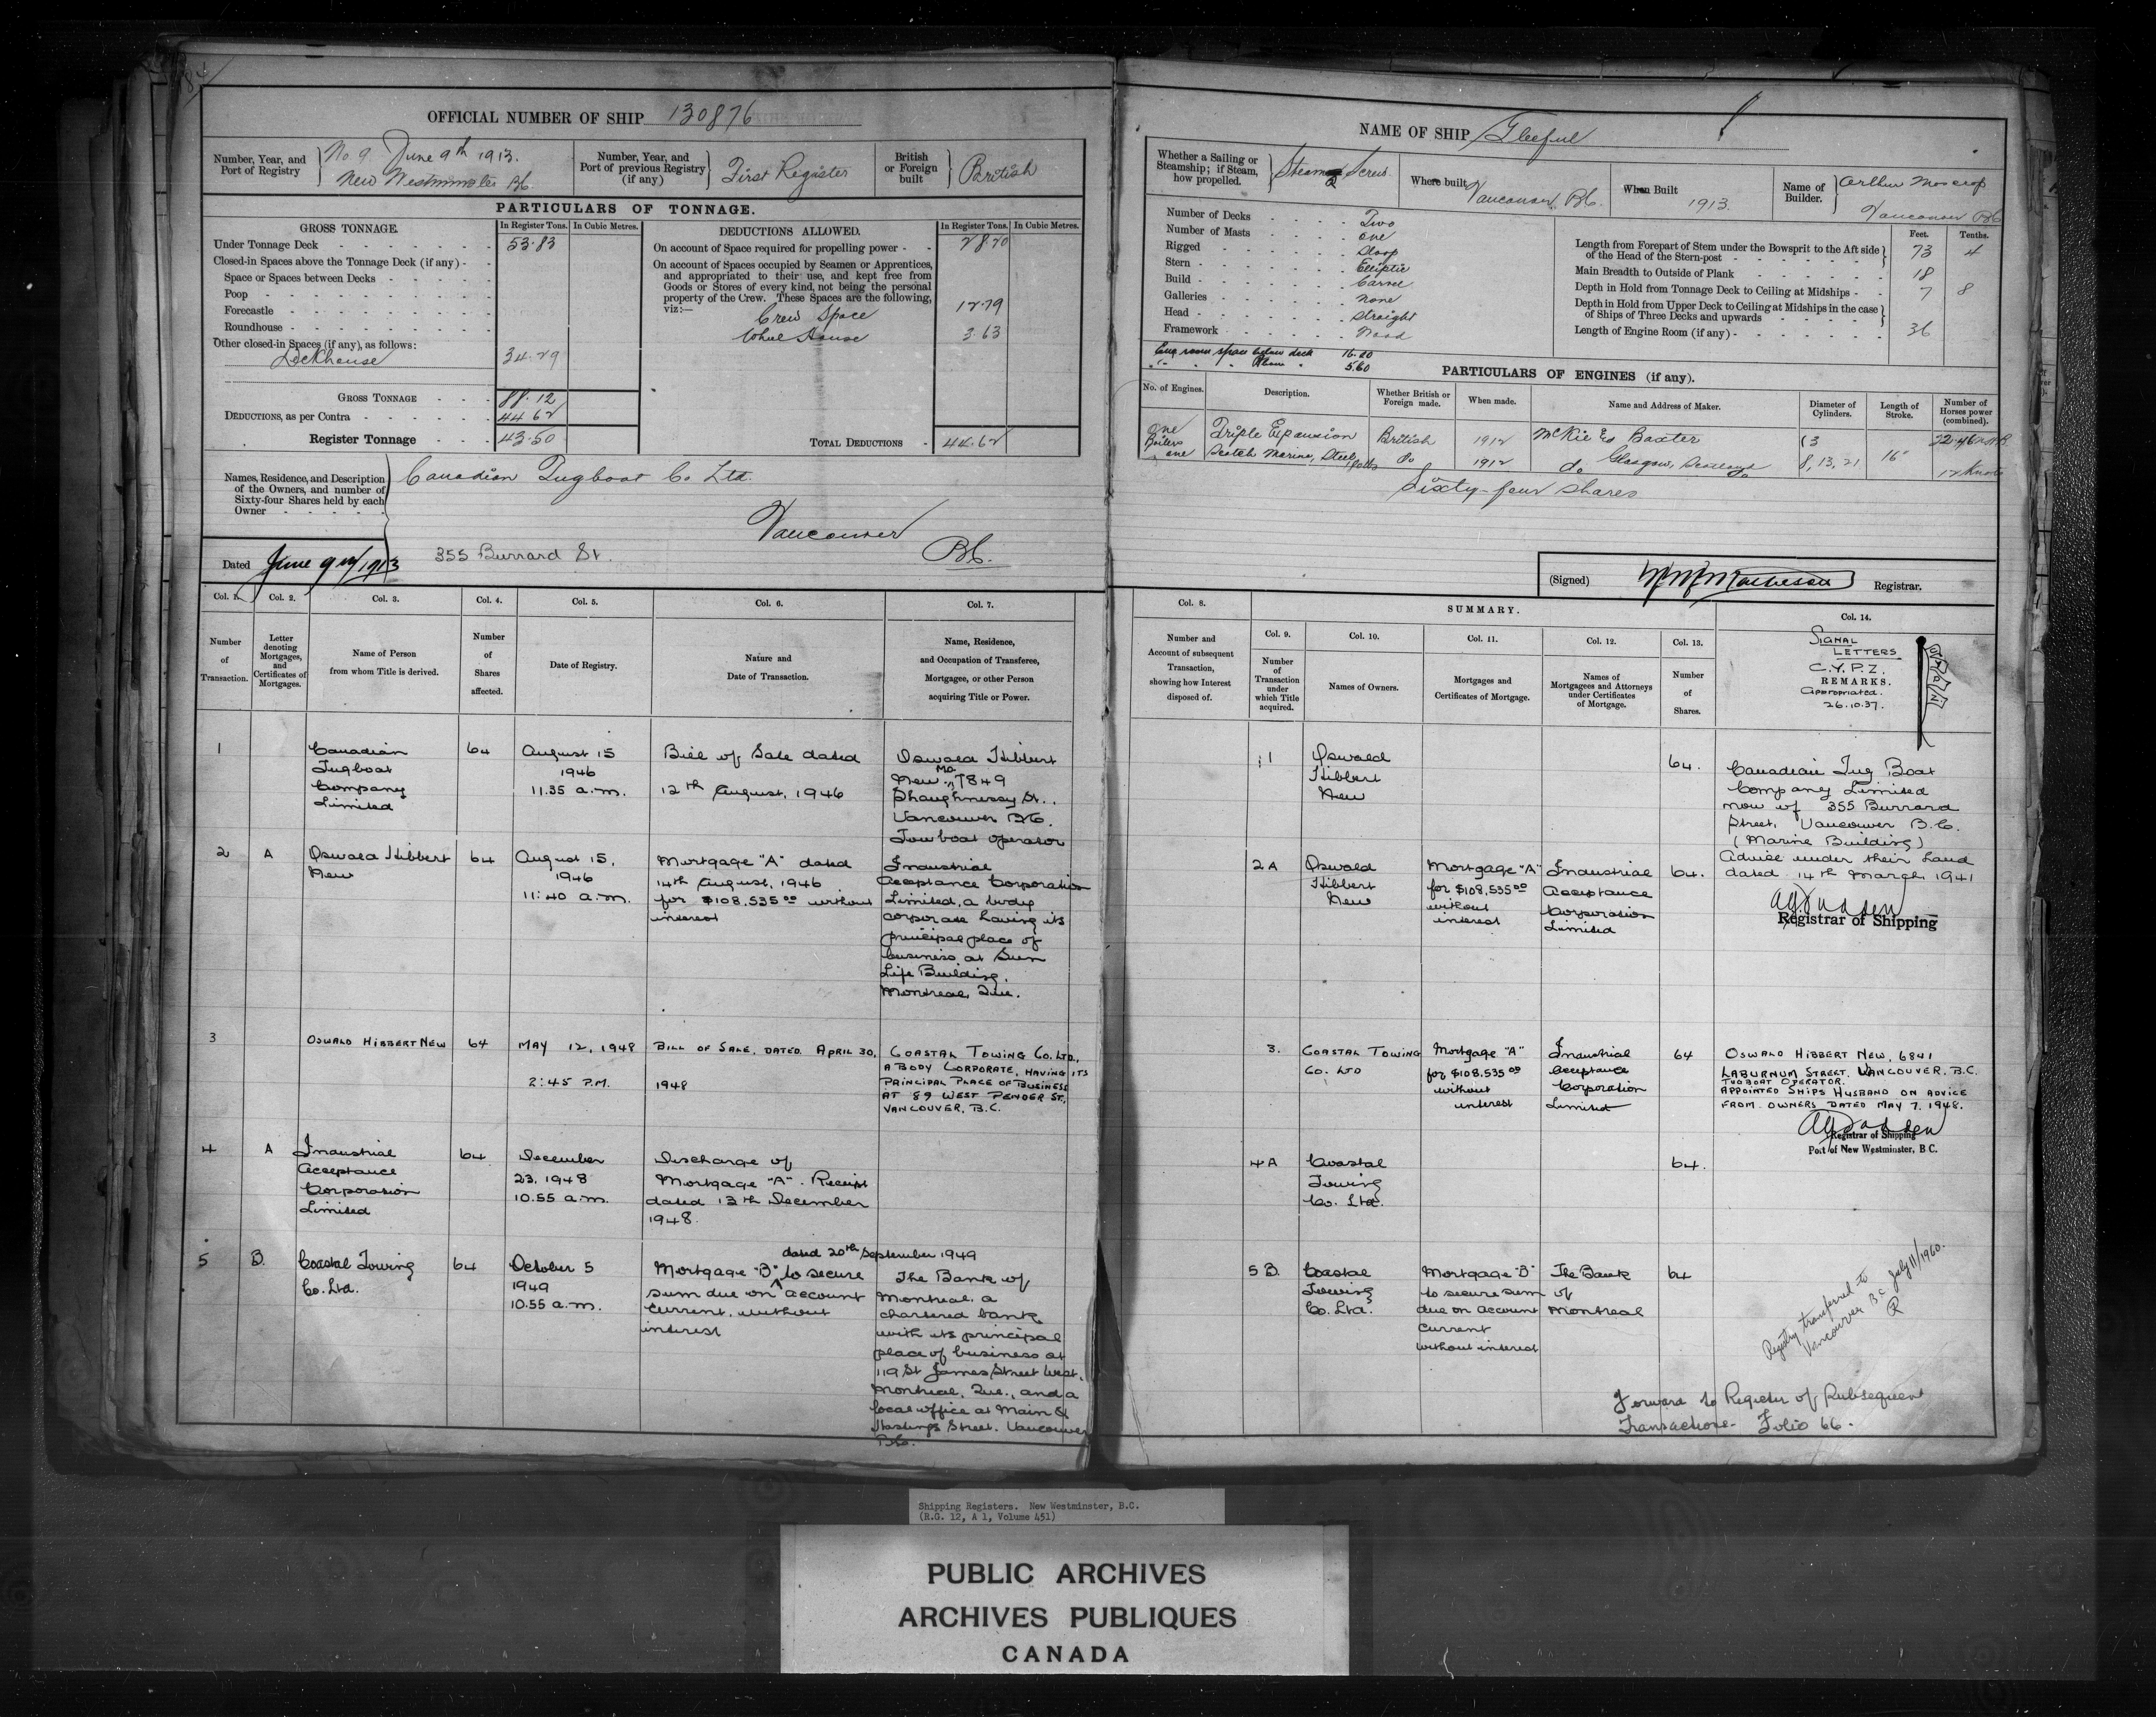 OFFICIAL NUMBER OF SHIP 130876
Number, Year, and Port of Registry
No 9 June 9th 1913.
New Westminster BC.
Number, Year, and Port of previous Registry (if any)
First Register
British or Foreign built
British
PARTICULARS OF TONNAGE.
GROSS TONNAGE.
In Register Tons.
In Cubic Metres.
Under Tonnage Deck 53.83
Closed-in Spaces above the Tonnage Deck (if any)
Space or Spaces between Decks
Poop
Forecastle
Roundhouse
Other closed-in Spaces (if any), as follows:
Deckhouse 34.29
GROSS TONNAGE 88.12
DEDUCTIONS, as per Contra 44.62
Register Tonnage 43.50
DEDUCTIONS ALLOWED.
In Register Tons.
In Cubic Metres.
On account of Space required for propelling power 28.20
On account of Spaces occupied by Seamen or Apprentices,
and appropriated to their use, and kept free from
Goods or Stores of every kind, not being the personal
property of the Crew. These Spaces are the following,
viz:—
Crew Space 12.79
Wheel House 3.63
TOTAL DEDUCTIONS 44.62
Names, Residence, and Description
of the Owners, and number of
Sixty-four Shares held by each
Owner
Canadian Tugboat Co Ltd.
Vancouver
BC.
355 Burrard St.
Dated June 9th/1913
NAME OF SHIP Gleeful
Whether a Sailing or Steamship; if Steam, how propelled.
Steam Screw
Where built
Vancouver, BC.
When Built
1913.
Name of Builder.
Arthur Moscrop
Vancouver BC
Number of Decks Two
Number of Masts One
Rigged Sloop
Stern Elliptic
Build Carvel
Galleries None
Head Straight
Framework Wood
Eng room space below deck 16.20
" " " Above " 5.60
Feet. Tenths.
Length from Forepart of Stem under the Bowsprit to the Aft side
of the Head of the Stern-post 73 4
Main Breadth to Outside of Plank 18
Depth in Hold from Tonnage Deck to Ceiling at Midships 7 8
Depth in Hold from Upper Deck to Ceiling at Midships in the case
of Ships of Three Decks and upwards
Length of Engine Room (if any) 36
PARTICULARS OF ENGINES (if any).
No. of Engines.
Description.
Whether British or Foreign made.
When made.
Name and Address of Maker.
Diameter of Cylinders.
Length of Stroke.
Number of Horses power (combined).
One Triple Expansion British 1912 McKie & Baxter 3
Boilers
one Scotch Marine, Steel Do 1912 do Glasgow, Scotland 8, 13, 21 16"
12 Knots
Sixty-four shares
(Signed) Registrar.
Col. 1. Number of Transaction.
Col. 2. Letter denoting Mortgages, and Certificates of Mortgages.
Col. 3. Name of Person from whom Title is derived.
Col. 4. Number of Shares affected.
Col. 5. Date of Registry.
Col. 6. Nature and Date of Transaction.
Col. 7. Name, Residence, and Occupation of Transferee, Mortgagee, or other Person acquiring Title or Power.
1
Canadian
Tugboat
Company
Limited
64
August 15
1946
11.35 a.m.
Bill of Sale dated
12th August, 1946
Oswald Hibbert
New. No. 7849
Shaughnessy St.,
Vancouver B.C.
Towboat operator
2 A
Oswald Hibbert
New
64
August 15,
1946
11:40 a.m.
Mortgage "A" dated
14th August, 1946
for $108,535.00 without
interest
Industrial
Acceptance Corporation
Limited, a body
corporate having its
principal place of
business at Sun
Life Building,
Montreal, Que.
3
OSWALD HIBBERT NEW
64
MAY 12, 1948
2:45 P.M.
BILL OF SALE, DATED APRIL 30,
1948
COASTAL TOWING CO. LTD.,
A BODY CORPORATE, HAVING ITS
PRINCIPAL PLACE OF BUSINESS
AT 89 WEST PENDER ST.,
VANCOUVER, B.C.
4 A
Industrial
Acceptance
Corporation
Limited
64
December
23, 1948
10.55 a.m.
Discharge of
Mortgage "A". Receipt
dated 13th December
1948.
5 B.
Coastal Towing
Co. Ltd.
64
October 5
1949
10.55 a.m.
dated 20th September 1949
Mortgage "B" to secure
sum due on account
current, without
interest
The Bank of
Montreal, a
chartered bank
with its principal
place of business at
119 St James Street West,
Montreal, Que., and a
local office at Main &
Hastings Street, Vancouver
B.C.
Col. 8. Number and Account of subsequent Transaction, showing how Interest disposed of.
SUMMARY.
Col. 9. Number of Transaction under which Title acquired.
Col. 10. Names of Owners.
Col. 11. Mortgages and Certificates of Mortgage.
Col. 12. Names of Mortgagees and Attorneys under Certificates of Mortgage.
Col. 13. Number of Shares.
Col. 14.
SIGNAL
LETTERS
C.Y.P.Z.
REMARKS.
Appropriated.
26.10.37.
1
Oswald
Hibbert
New
64.
Canadian Tug Boat
Company Limited
now of 355 Burrard
Street, Vancouver B.C.
(Marine Building)
Advice under their hand
dated 14th March 1941
Registrar of Shipping
2 A
Oswald
Hibbert
New
Mortgage "A"
for $108,535.00
without
interest
Industrial
Acceptance
Corporation
Limited
64.
3.
COASTAL TOWING
CO. LTD
Mortgage "A"
for $108,535.00
without
interest
Industrial
Acceptance
Corporation
Limited
64
OSWALD HIBBERT NEW, 6841
LABURNUM STREET, VANCOUVER, B.C.
TUGBOAT OPERATOR.
APPOINTED SHIPS HUSBAND ON ADVICE
FROM OWNERS DATED MAY 7, 1948.
Registrar of Shipping
Port of New Westminster, B C.
4 A
Coastal
Towing
Co. Ltd.
64.
5 B.
Coastal
Towing
Co. Ltd.
Mortgage "B"
to secure sum
due on account
current
without interest
The Bank
of
Montreal
64
Registry transferred to
Vancouver B.C. July 11/1960.
Forward to Register of Subsequent
Transactions- Folio 66.
Shipping Registers. New Westminster, B.C.
(R.G. 12, A 1, Volume 451)
PUBLIC ARCHIVES
ARCHIVES PUBLIQUES
CANADA